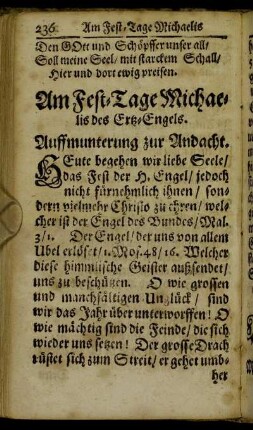 236 Am Fest-Tage Michaelis
Den GOtt und Schöpffer unser all/
Soll meine Seel/ mit starckem Schall/
Hier und dort ewig preisen.
Am Fest-Tage Michae-
lis des Ertz-Engels.
Auffmunterung zur Andacht.
HEute begehen wir liebe Seele/
das Fest der H. Engel/ jedoch
nicht fürnehmlich ihnen/ son-
dern vielmehr Christo zu ehren/ wel-
cher ist der Engel des Bundes/ Mal.
3/1. Der Engel/ der uns von allem
Ubel erlöset/ 1. Mos. 48/16. Welcher
diese himmlische Geister außsendet/
uns zu beschützen. O wie grossen
und manchfältigen Unglück/ sind
wir das Jahr über unterworffen! O
wie mächtig sind die Feinde/ die sich
wieder uns setzen! Der grosse Drach
rüstet sich zum Streit/ er gehet umb-
her